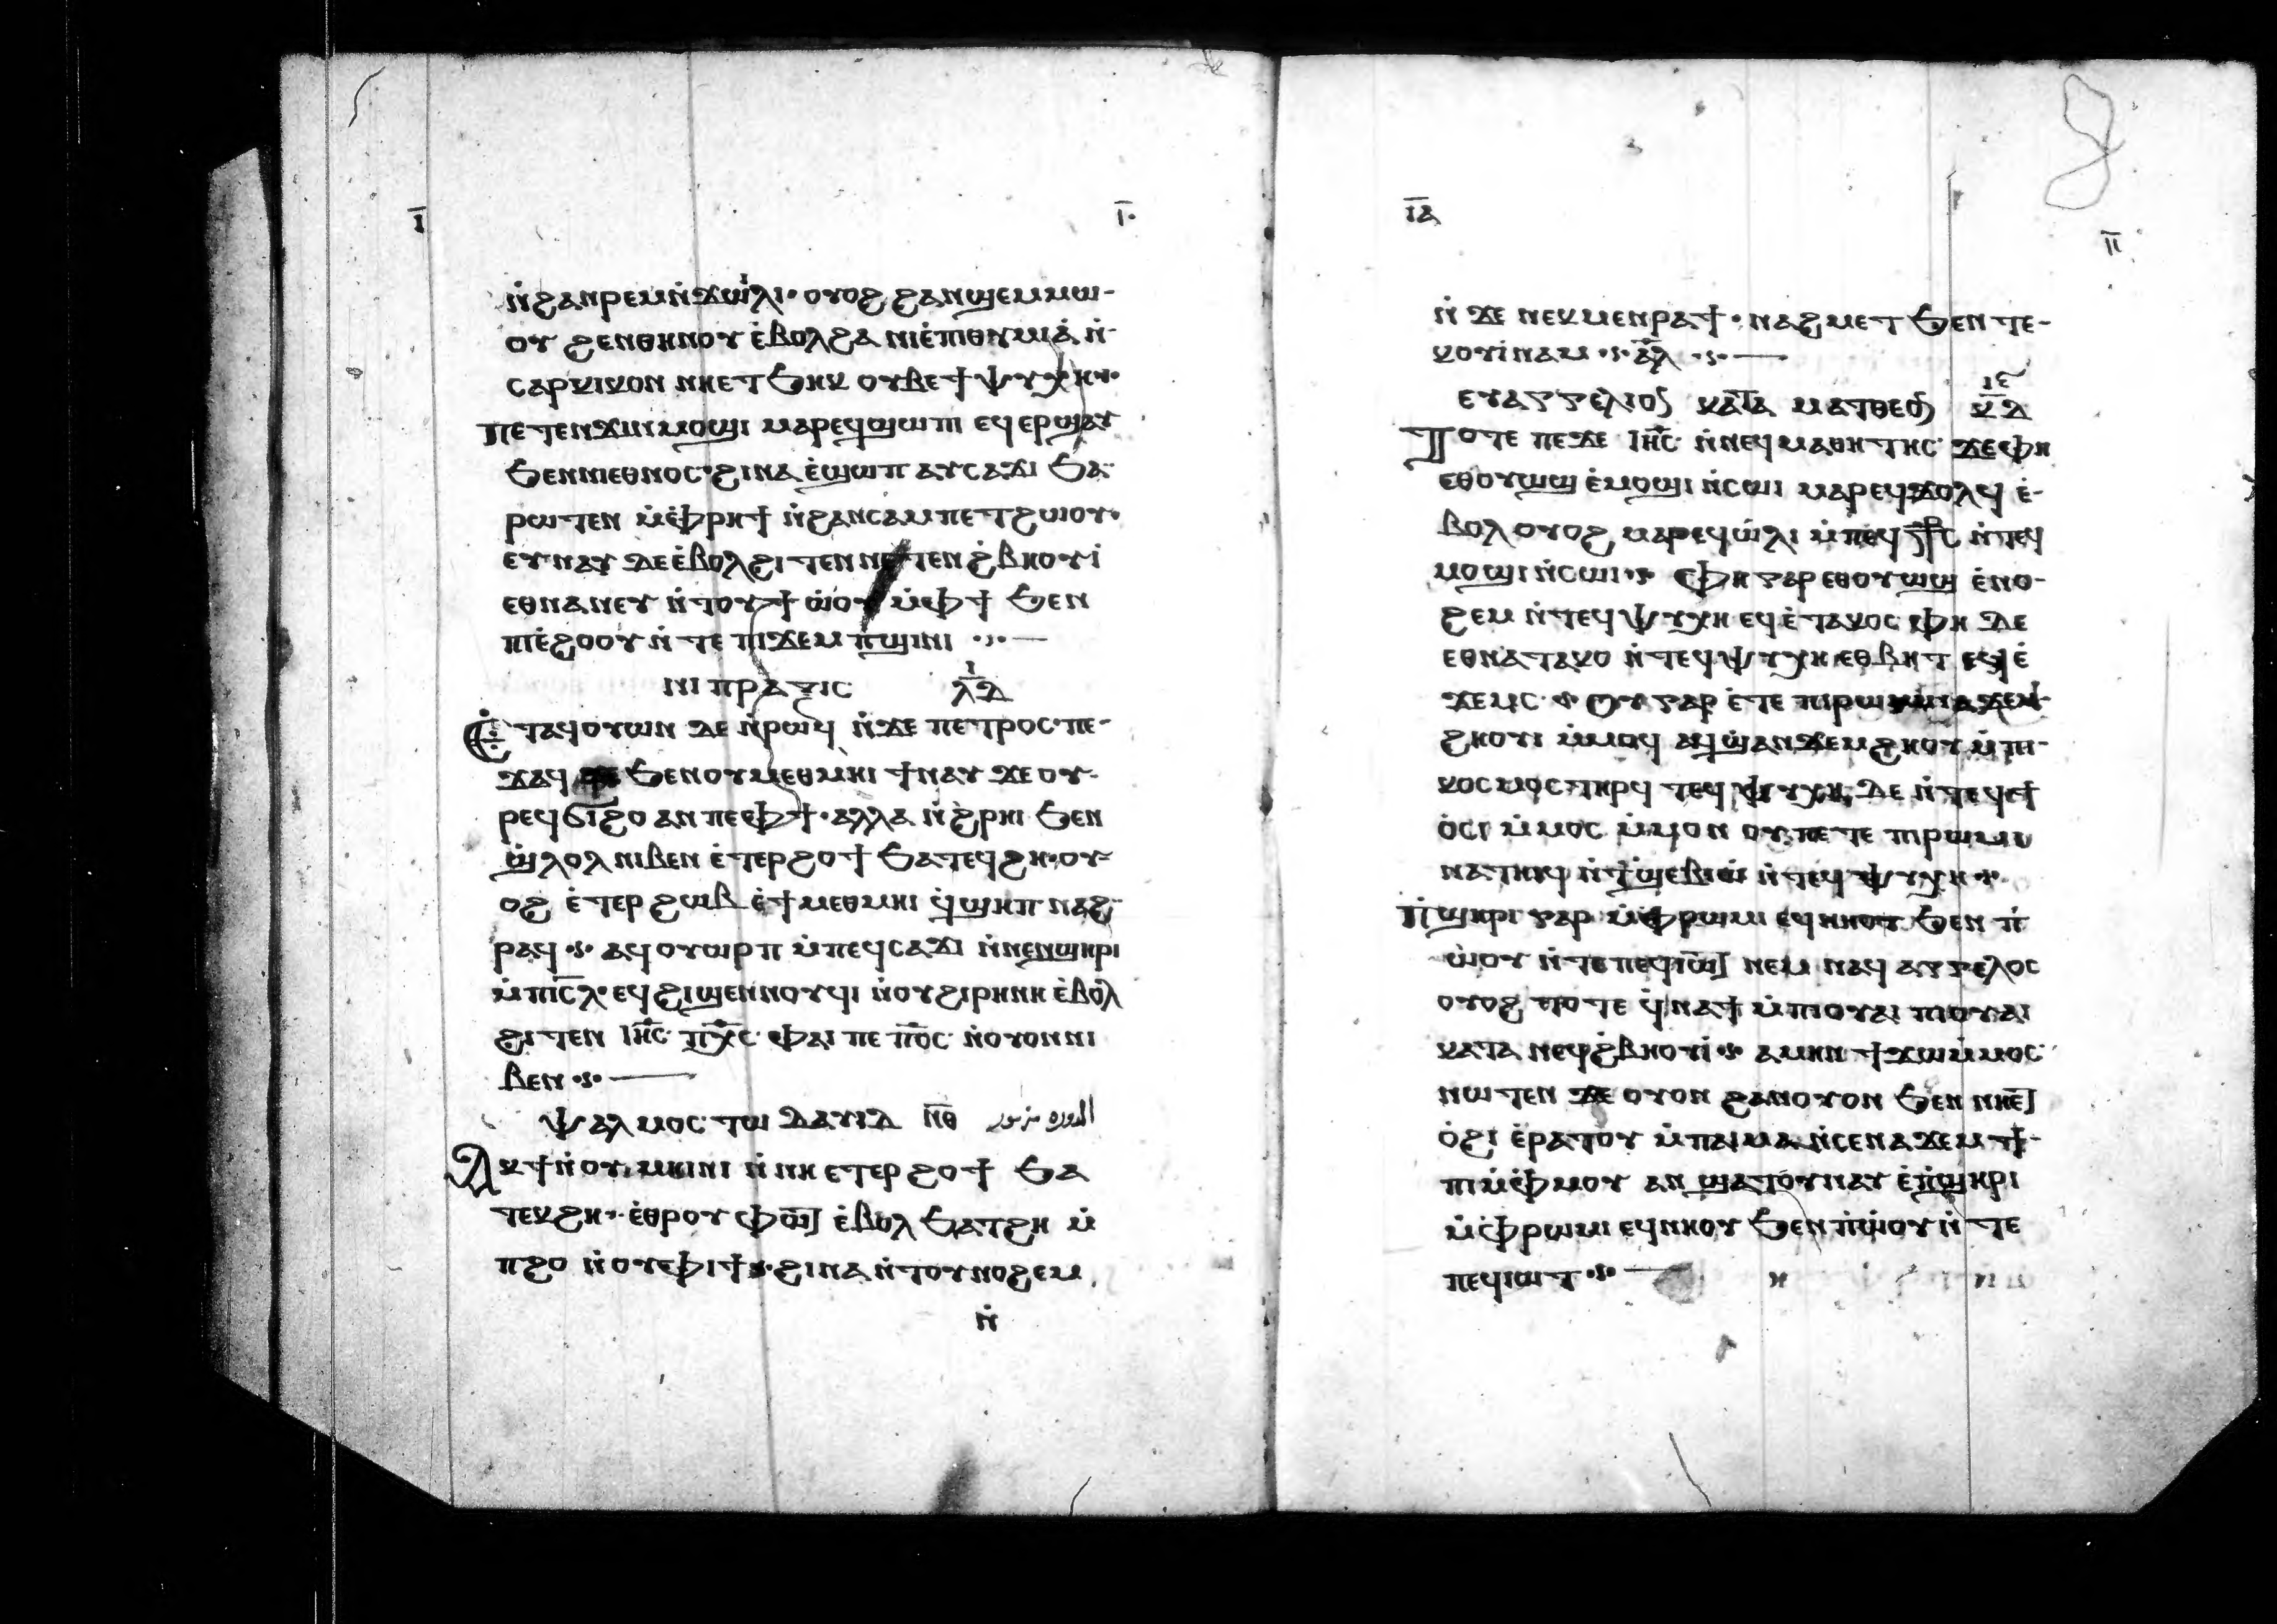 ⲓ̅ ⲓ̅·
ⲛ̇ϩⲁⲛⲣⲉⲙⲛ̇ϫⲱⲓ̇ⲗⲓ· ⲟⲩⲟϩ ϩⲁⲛϣⲉⲙⲙⲱ-
ⲟⲩ ϩⲉⲛⲑⲏⲛⲟⲩ ⲉ̇ⲃⲟⲗϩⲁ ⲛⲓⲉ̇ⲡⲓⲑⲩⲙⲓⲁ̇ ⲛ̇-
ⲥⲁⲣⲕⲓⲕⲟⲛ ⲛⲏⲉⲧϧⲏⲕ ⲟⲩⲃⲉϯⲯⲩⲭⲏ·
ⲡⲉⲧⲉⲛϫⲓⲛⲙⲟϣⲓ ⲙⲁⲣⲉϥϣⲱⲡⲓ ⲉϥⲉⲣϣⲁⲩ
ϧⲉⲛⲛⲓⲉⲑⲛⲟⲥ·ϩⲓⲛⲁ ⲉ̇ϣⲱⲡ ⲁⲩⲥⲁϫⲓ ϧⲁ-
ⲣⲱⲧⲉⲛ ⲙ̇ⲫ̇ⲣⲏϯ ⲛ̇ϩⲁⲛⲥⲁⲙⲡⲉⲧϩⲱⲟⲩ·
ⲉⲩⲛⲁⲩ ⲇⲉⲉ̇ⲃⲟⲗϩⲓⲧⲉⲛ ⲛⲉⲧⲉⲛϩ̇ⲃⲏⲟⲩⲓ̇
ⲉⲑⲛⲁⲛⲉⲩ ⲛ̇ⲧⲟⲩϯ ⲱ̇ⲟⲩ ⲙ̇ⲫϯ ϧⲉⲛ
ⲡⲓⲉ̇ϩⲟⲟⲩ ⲛ̇ⲧⲉ ⲡⲓϫⲉⲙ ⲡ̇ϣⲓⲛⲓ ·
ⲛⲓ ⲡⲣⲁⲝⲓⲥ ⲓ̅ ⲗ̅ⲇ̅
Ⲉ̇ⲧⲁϥⲟⲩⲱⲛ ⲇⲉ ⲛ̇ⲣⲱϥ ⲛ̇ϫⲉ ⲡⲉⲧⲣⲟⲥ·ⲡⲉ-
ϫⲁϥ ϧⲉⲛⲟⲩⲙⲉⲑⲙⲏⲓ ϯⲛⲁⲩ ϫⲉ ⲟⲩ-
ⲣⲉϥϭⲓϩⲟ ⲁⲛ ⲡⲉⲫϯ·ⲁⲗⲗⲁ ⲛ̇ϩ̇ⲣⲏⲓ ϧⲉⲛ
ϣ̇ⲗⲟⲗ ⲛⲓⲃⲉⲛ ⲉ̇ⲧⲉⲣϩⲟϯ ϧⲁⲧⲉϥϩⲏ·ⲟⲩ-
ⲟϩ ⲉ̇ⲧⲉⲣ ϩⲱⲃ ⲉ̇ϯⲙⲉⲑⲙⲏⲓ ϥ̇ϣⲏⲡ ⲛⲁϩ-
ⲣⲁϥ · ⲁϥⲟⲩⲱⲣⲡ ⲙ̇ⲡⲉϥⲥⲁϫⲓ ⲛ̇ⲛⲉⲛϣⲏⲣⲓ
ⲙ̇ⲡⲓⲥ̅ⲗ·ⲉϥϩⲓϣⲉⲛⲛⲟⲩϥⲓ ⲛ̇ⲟⲩϩⲓⲣⲏⲛⲏ ⲉ̇ⲃⲟⲗ
ϩⲓⲧⲉⲛ ⲓⲏ̅ⲥ ⲡⲭ̅ⲥ ⲫⲁⲓ ⲡⲉ ⲡ̅ⲟ̅ⲥ ⲛ̇ⲟⲩⲟⲛⲛⲓ
ⲃⲉⲛ ·
ⲯⲁⲗⲙⲟⲥ ⲧⲱ ⲇⲁⲩⲓⲇ ⲛ̅ⲑ̅
Ⲁⲕϯⲛ̇ⲟⲩⲙⲏⲓⲛⲓ ⲛ̇ⲛⲏ ⲉⲧⲉⲣ ϩⲟϯ ϧⲁ
ⲧⲉⲕϩⲏ· ⲉ̇ⲑⲣⲟⲩⲫⲱ̅ⲧ ⲉ̇ⲃⲟⲗ ϧⲁⲧϩⲏ ⲙ̇
ⲡϩⲟ ⲛ̇ⲟⲩⲫⲓϯ·ϩⲓⲛⲁ ⲛ̇ⲧⲟⲩⲛⲟϩⲉⲙ
ⲛ̇
ⲓ̅ⲁ̅ ⲓ̅ⲓ̅
ⲛ̇ϫⲉ ⲛⲉⲕⲙⲉⲛⲣⲁϯ·ⲛⲁϩⲙⲉⲧ ϧⲉⲛ ⲧⲉ-
ⲕⲟⲩⲓ̇ⲛⲁⲙ · ⲁ̅ⲗ̅ ·
ⲉⲩⲁⲅⲅⲉⲗⲓⲟⲛ ⲕⲁⲧⲁ ⲙⲁⲧⲑⲉⲟⲛ ⲓⲉ̅ ⲕ̅ⲇ̅
Ⲧⲟⲧⲉ ⲡⲉϫⲉ ⲓⲏ̅ⲥ ⲛ̇ⲛⲉϥⲙⲁⲑⲏⲧⲏⲥ ϫⲉⲫⲏ
ⲉⲑⲟⲩⲱϣ ⲉ̇ⲙⲟϣⲓ ⲛ̇ⲥⲱⲓ ⲙⲁⲣⲉϥϫⲟⲗϥ ⲉ̇-
ⲃⲟⲗ ⲟⲩⲟϩ ⲙⲁⲣⲉϥⲱ̇ⲗⲓ ⲙ̇ⲡⲉϥ ⳧ⲥ ⲛ̇ⲧⲉϥ
ⲙⲟϣⲓⲛ̇ⲥⲱⲓ · ⲫⲏ ⲅⲁⲣ ⲉⲑⲟⲩⲱϣ ⲉ̇ⲛⲟ-
ϩⲉⲙ ⲛ̇ⲧⲉϥⲯⲩⲭⲏ ⲉϥⲉ̇ⲧⲁⲕⲟⲥ ⲫⲏ ⲇⲉ
ⲉⲑⲛⲁⲧⲁⲕⲟ ⲛ̇ⲧⲉϥⲯⲩⲭⲏ ⲉⲑⲃⲏⲧ ⲉϥⲉ̇
ϫⲉⲙⲥ · ⲟⲩ ⲅⲁⲣ ⲉ̇ⲧⲉ ⲡⲓⲣⲱⲙⲓⲛⲁϫⲉⲙ-
ϩⲏⲟⲩⲓ ⲙ̇ⲙⲟϥ ⲁϥϣ̇ⲁⲛϫⲉⲙϩⲏⲟⲩ ⲙ̇ⲡⲓ-
ⲕⲟⲥⲙⲟⲥ ⲧⲏⲣϥ ⲧⲉϥ ⲯⲩⲭⲏ ⲇⲉ ⲛ̇ⲧⲉϥϯ
ⲟ̇ⲥⲓ ⲙ̇ⲙⲟⲥ ⲙ̇ⲙⲟⲛ ⲟⲩ ⲡⲉⲧⲉ ⲡⲓⲣⲱⲙⲓ
ⲛⲁⲧⲏⲓϥ ⲛ̇ⲧ̇ϣⲉⲃⲓⲱ̇ ⲛ̇ⲧⲉϥⲯⲩⲭⲏ ·
Ⲡ̇ϣⲏⲣⲓ ⲅⲁⲣ ⲙ̇ⲫⲣⲱⲙⲓ ⲉϥⲛⲏⲟⲩ ϧⲉⲛ ⲡ̇
ⲱ̇ⲟⲩ ⲛ̇ⲧⲉ ⲡⲉϥⲓⲱ̅ⲧ ⲛⲉⲙ ⲛⲁϥ ⲁⲅⲅⲉⲗⲟⲥ
ⲟⲩⲟϩ ⲧⲟⲧⲉ ϥ̇ⲛⲁϯ ⲙ̇ⲡⲓⲟⲩⲁⲓ ⲡⲓⲟⲩⲁⲓ
ⲕⲁⲧⲁ ⲛⲉϥϩ̇ⲃⲏⲟⲩⲓ̇ · ⲁⲙⲏⲛ ϯϫⲱⲙ̇ⲙⲟⲥ
ⲛⲱⲧⲉⲛ ϫⲉ ⲟⲩⲟⲛ ϩⲁⲛⲟⲩⲟⲛ ϧⲉⲛ ⲛⲏⲉ̅ⲧ
ⲟ̇ϩⲓ ⲉ̇ⲣⲁⲧⲟⲩ ⲙ̇ⲡⲁⲓⲙⲁ ⲛ̇ⲥⲉⲛⲁϫⲉⲙϯ-
ⲡⲓⲙ̇ⲫⲙⲟⲩ ⲁⲛ ϣⲁⲧⲟⲩⲛⲁⲩ ⲉ̇ⲡ̇ϣⲏⲣⲓ
ⲙ̇ⲫ̇ⲣⲱⲙⲓ ⲉϥⲛⲏⲟⲩ ϧⲉⲛ ⲡ̇ⲱ̇ⲟⲩ ⲛ̇ⲧⲉ
ⲡⲉϥⲓⲱⲧ ·